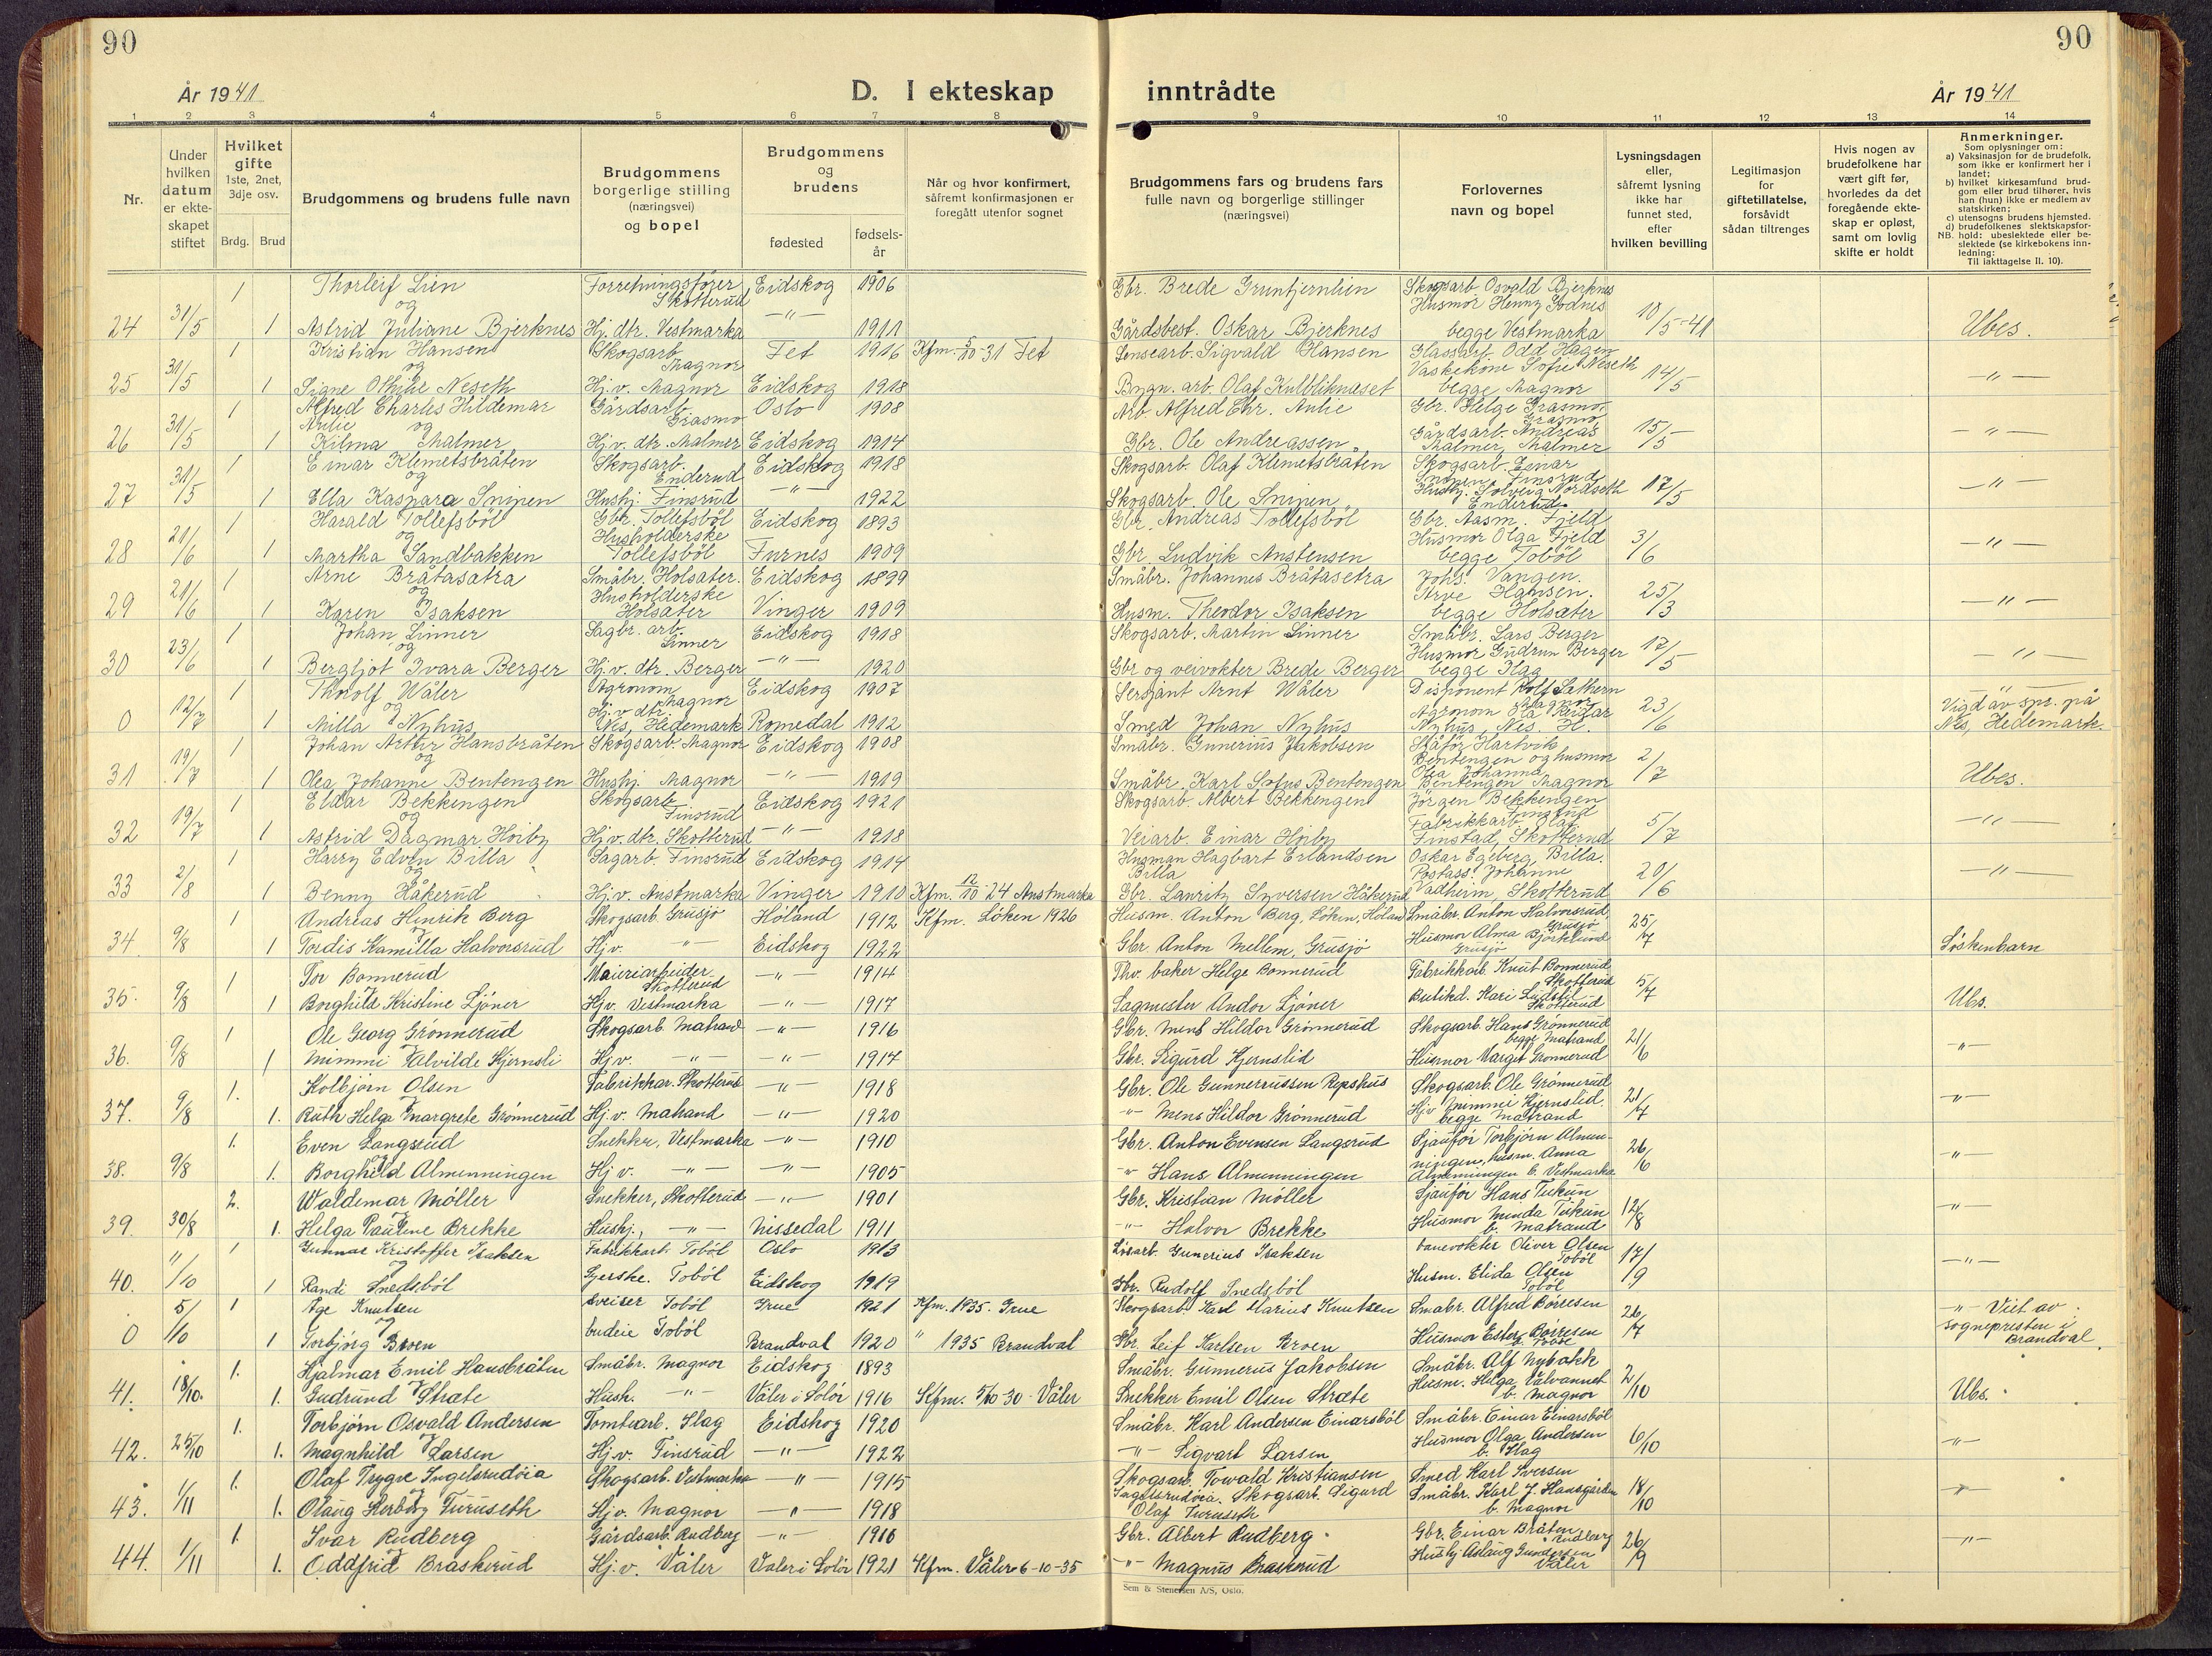 90
90
År 1941
D. I ekteskap
inntrådte
År 1941
1 2 3 4 5 6 7 8 9 10 11 12 13 14
Nr.
Under hvilken datum er ekteskapet stiftet
Hvilket gifte 1ste, 2net, 3dje osv.
Brdg. Brud
Brudgommens og brudens fulle navn
Brudgommens borgerlige stilling (næringsvei) og bopel
Brudgommens og brudens
fødested
fødsels-år
Når og hvor konfirmert, såfremt konfirmasjonen er foregått utenfor sognet
Brudgommens fars og brudens fars fulle navn og borgerlige stillinger (næringsvei)
Forlovernes navn og bopel
Lysningsdagen eller, såfremt lysning ikke har funnet sted, efter hvilken bevilling
Legitimasjon for giftetillatelse, forsåvidt sådan tiltrenges
Hvis nogen av brudefolkene har vært gift før, hvorledes da det foregående ekteskap er opløst, samt om lovlig skifte er holdt
Anmerkninger.
Som oplysninger om:
a) Vaksinasjon for de brudefolk, som ikke er konfirmert her i landet;
b) hvilket kirkesamfund brudgom eller brud tilhører, hvis han (hun) ikke er medlem av statskirken;
c) utensogns brudens hjemsted.
d) brudefolkenes slektskapsforhold: ubeslektede eller beslektede (se kirkebokens innledning:
NB.
Til iakttagelse II. 10).
1 Thorleif Lien Forretningsfører Skotterud Eidskog 1906 Gbr. Brede Gruntjernlien Skogsarb Osvald Bjerknes
og
24 31/5 1 Astrid Juliane Bjerknes Hj. dtr. Vestmarka —"— 1911 Gårdsbest. Oskar Bjerknes Husmor Henny begge Vestmarka 10/5-41 Ubes.
1 Kristian Hansen Skogsarb. Magnor Fet 1916 Kfm. 5/10-31 Fet Lensearb. Sigvald Hansen Odd Hagen
og
25 31/5 1 Signe Othilie Neseth Hj.v. Magnor Eidskog 1918 Bygn. arb. Olaf Vaskekone Sofie Neseth begge Magnor 14/5 —"—
1 Alfred Charles Hildemar Aulie Gårdsarb. Grasmo Oslo 1908 Arb Alfred Chr. Aulie Gbr. Helge Grasmo, Grasmo
og
26 31/5 1 Kilma Malmer Hj.v. dtr. Malmer Eidskog 1914 Gbr. Ole Andreassen Gårdsarb. Andreas Malmer, Malmer 15/5 —"—
1 Einar Klemetsbråten Skogsarb. Enderud Eidskog 1918 Skogsarb. Olaf Klemetsbråten Skogsarb. Einar Snipen, Finsrud
og
27 31/5 1 Ella Kaspara Snipen Hushj. Finsrud —"— 1922 Skogsarb. Ole Snipen Hushj. Solveig Nordseth Enderud 17/5 —"—
1 Harald Tollefsbøl Gbr. Tollefsbøl Eidskog 1893 Gbr. Andreas Tollefsbøl Gbr. Aasm. Fjeld
og
28 21/6 1 Martha Sandbakken Husholderske Tollefsbøl Furnes 1909 Gbr. Ludvik Anstensen Husmor Olga Fjeld begge Tobøl 3/6 —"—
1 Arne Bråtasætra Småbr. Holsæter. Eidskog 1899 Småbr. Johannes Bråtasetra Johs. Vangen.
og
29 21/6 1 Karen Isaksen Husholderske Holsæter Vinger 1909 Husm. Theodor Isaksen Arve Hansen. begge Holsæter 25/3 —"—
1 Johan Linner Sagbr. arb. Linner Eidskog 1918 Skogsarb. Martin Linner Småbr. Lars Berger
og
30 23/6 1 Bergljot Ivara Berger Hj.v. dtr. Berger —"— 1920 Gbr og veivokter Brede Berger Husmor Gudrun Berger begge Flag 17/5 —"—
1 Thorolf Wåler Agronom Magnor Eidskog 1907 Sersjant Arnt Wåler Disponent Rolf Sæthern Magnor
og
0 12/7 1 Milla Nyhus Hj.v. dtr. Nes, Hedemark Romedal 1912 Smed Johan Nyhus Agronom Nyhus, Nes. H. 23/6 Vigd av spr. på Nes, Hedemark.
1 Johan Arthur Hansbråten Skogsarb. Magnor Eidskog 1908 Småbr. Gunnerius Jakobsen Sjåför Hartvik
og
31 19/7 1 Olea Johanne Bentengen Hushj. Magnor —"— 1919 Småbr. Karl Sofus Bentengen Bentengen og husmor Olea Johanna Bentengen Magnor 2/7 Ubes.
1 Eldar Bekkengen Skogsarb. Finsrud Eidskog 1921 Skogsarb. Albert Bekkengen Jörgen Bekkengen Finsrud
og
32 19/7 1 Astrid Dagmar Høiby Hj.v. dtr. Skotterud —"— 1918 Veiarb. Einar Høiby Fabrikkarb. Olaf Finstad, Skotterud 5/7 —"—
1 Harry Edvin Billa Sagarb. Finsrud Eidskog 1914 Husman Hagbart Erlandsen Billa Oskar Egeberg, Billa.
og
33 2/8 1 Benny Håkerud Hj.v. Austmarka Vinger 1910 Kfm. 12/10-24 Austmarka Gbr. Lauritz Syversen Håkerud Postass. Johanne Vadheim, Skotterud 20/6 —"—
1 Andreas Henrik Berg Skogsarb. Grusjø Høland 1912 Kfm. Løken 1926 Husm. Anton Berg, Løken, Høland Småbr. Anton Halvorsrud, Grusjø
34. 9/8 1 Tordis Kamilla Halvorsrud Hj.v. —"— Eidskog 1922 Gbr. Anton Mellem, Grusjø Husmor Alma Björklund Grusjø 25/7 Søskenbarn
1 Tor Bonnerud Meieriarbeider. Skotterud —"— 1914 Thv. baker Helge Bonnerud Fabrikkarb. Knut Bonnerud Skotterud
35. 9/8 1 Borghild Kristine Sjöner Hjv. Vestmarka —"— 1917 Sagmester Andor Sjöner Butikd. Kari Skotterud 5/7 Ubs.
1 Ole Georg Grønnerud Skogsarb. Matrand —"— 1916 Gbr. Mens Hildor Grønnerud Skogsarb. Hans Grønnerud begge Matrand
36. 9/8 1 Mimmi Valvilde Kjernsli Hj.v. —"— —"— 1917 Gbr. Sigurd Kjernslid Husmor Marget Grønnerud 21/6 —"—
1. Kolbjørn Olsen Fabrikkar. Skotterud —"— 1918 Gbr. Ole Gunnerussen Repshus Skogsarb. Ole Grønnerud
37. 9/8 1. Ruth Helga Margrete Grønnerud Hj.v. Matrand —"— 1920 —"— Mens Hildor Grønnerud Hjv Mimmi Kjernslid. begge Matrand 21/7 —"—
1. Even Langsrud Snekker, Vestmarka —"— 1910 Gbr. Anton Evensen Langsrud Sjåufør Torbjørn Almen-
og
38. 9/8 1. Borghild Almenningen Hjv. —"— —"— 1905 —"— Hans Almenningen ningen, husm. Anna Almenningen b. Vestmarka 26/6 —"—
2. Waldemar Møller Snekker, Skotterud —"— 1901 Gbr. Kristian Møller Sjåufør Hans Tukun
39. 30/8 1. Helga Pauline Brekke Hushj., —"— Nissedal 1911 —"— Halvor Brekke Husmor Minda Tukun b. Matrand 12/8 —"—
1 Gunnar Kristoffer Isaksen Fabrikkarb. Tobøl Oslo 1913 Løsarb. Gunerius Isaksen banevokter Oliver Olsen Tobøl
og
40. 11/10 1 Randi Snedsbøl Gjerske. Tobøl Eidskog 1919 Gbr. Rudolf Snedsbøl Husm. Elida Olsen Tobøl 17/9 —"—
1 Åge Knutsen sveiser Tobøl Grue 1921 Kfm. 1935. Grue Skogsarb. Karl Marius Knutsen Småbr. Alfred Börresen
0 5/10 1 Torbjörg Broen budeie Tobøl Brandval 1920 " 1935 Brandval Gbr. Leif Karlsen Broen Husmor Ester Börresen b. Tobøl 26/7 —"— Viet av sognepresten i Brandval.
1. Hjalmar Emil Hansbråten Småbr. Magnor Eidskog 1893 Småbr. Gunnerus Jakobsen Småbr. Alf Nybakk
41. 18/10. 1. Gudrund Stræte Hush. —"— Våler i Solør 1916 Kfm. 5/10 30 - Våler Snekker Emil Olsen Stræte Husm. Helga b. Magnor 2/10 Ubs.
1. Torbjørn Osvald Andersen Tomtearb. Flag Eidskog 1920 Småbr. Karl Andersen Einarsbøl Småbr. Einar Einarsbøl
42. 25/10 1. Magnhild Larsen Hj.v. Finsrud —"— 1922 —"— Sigvart Larsen Husmor Olga Andersen b. Flag 6/10 —"—
1. Olaf Trygve Ingelsrudøia Skogsarb. Vestmarka —"— 1915 Skogsarb. Towald Kristiansen Ingelsrudøia. Smed Karl Iversen
43. 1/11 1. Olaug Herborg Furuseth Hj.v. Magnor —"— 1918 Skogsarb. Sigurd Olaf Furuseth Småbr. Karl J. Hansgården b. Magnor 18/10 —"—
1. Ivar Rudberg Gårdsarb. Rudberg —"— 1916 Gbr. Albert Rudberg. Gbr. Einar Bråten, Rudberg
og
44. 1/11 1. Oddfrid Braskerud Hj.v. Våler Våler i Solør 1921 Kfm. Våler 6-10-35 —"— Magnus Braskerud Hushj Aslaug Gundersen Våler 26/9 —"—
Sem & Stenersen A/S, Oslo.